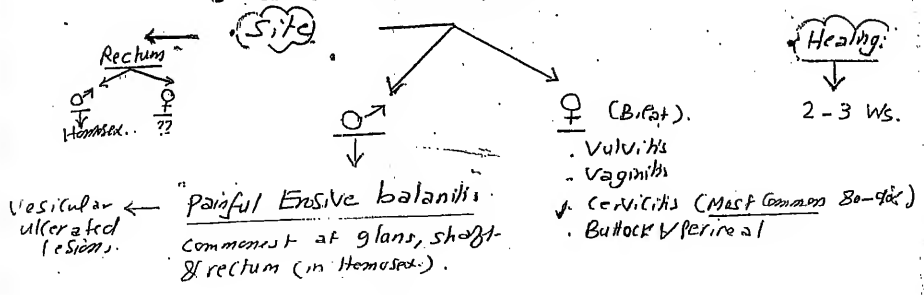 Site
Healing:
Rectum
♂ ♀
Homosex.. ??
♂ ♀ (Bilat).
2 - 3 Ws.
. Vulvitis
. Vaginitis
. Cervicitis (Most Common 80-90%)
. Buttock & Perineal
Vesicular ulcerated lesions.
"Painful Erosive balanitis.
Commonest at glans, shaft
& rectum (in Homosex.).